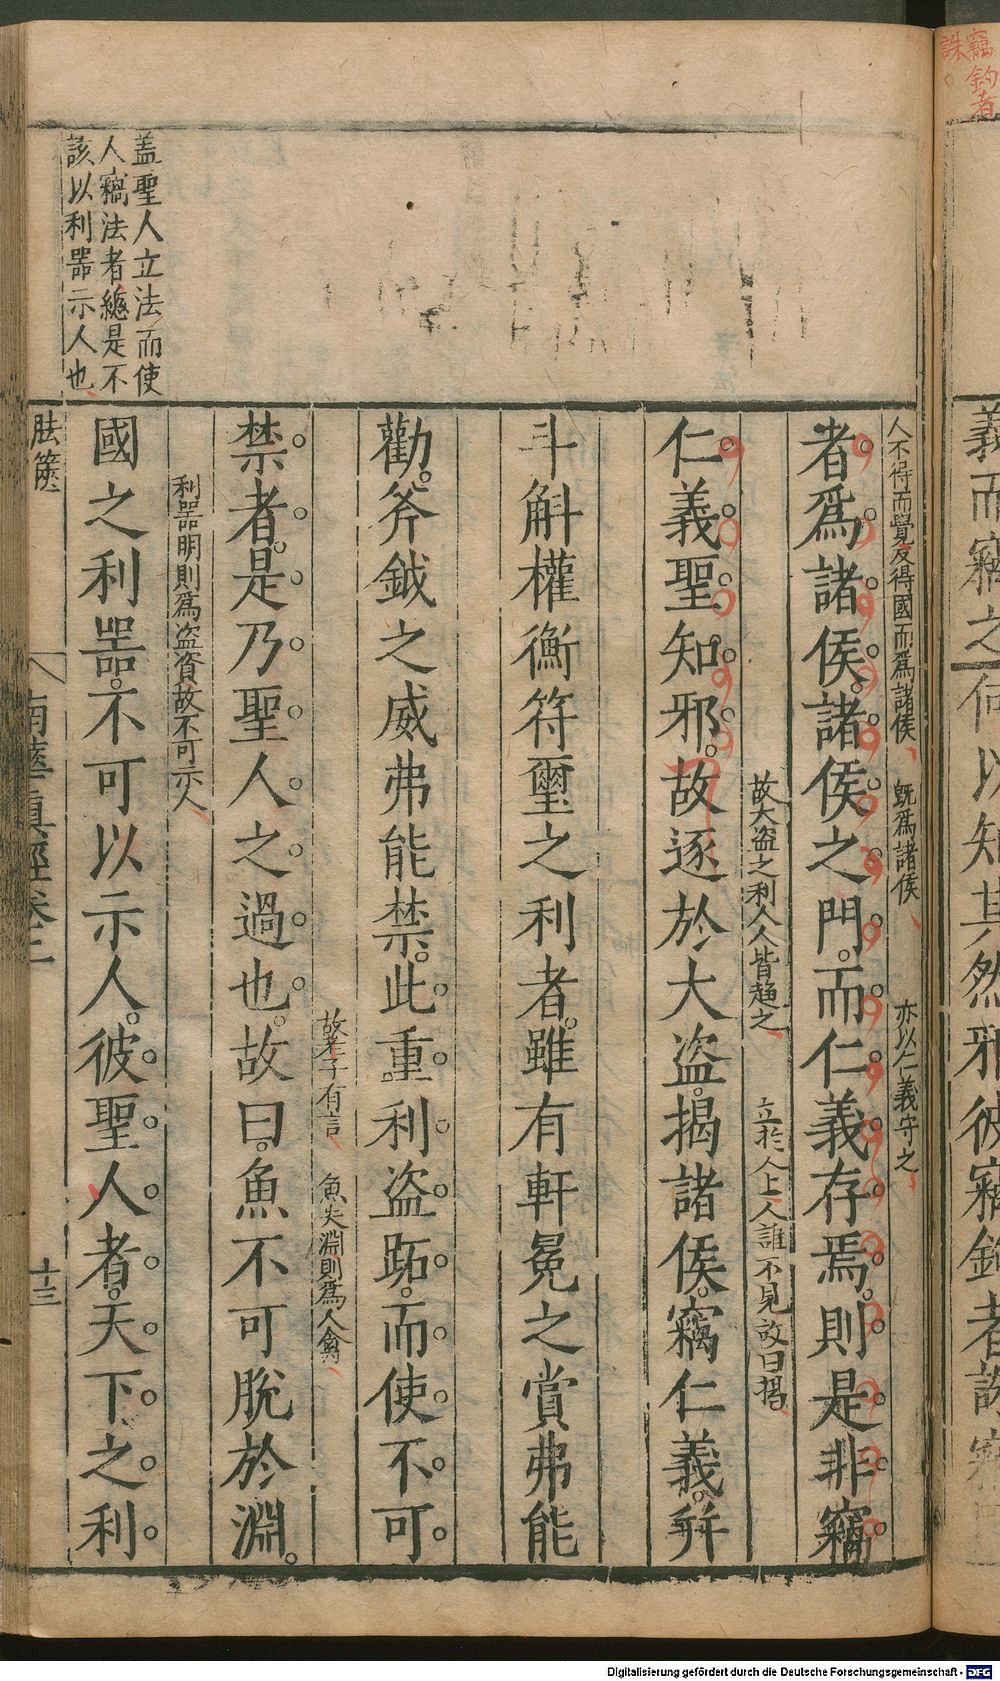 竊鈎者
誅
義而竊之何以知其然邪彼竊鈎者誅竊
人不得而覺反得國而爲諸侯 既爲諸侯 亦以仁義守之
者爲諸侯諸侯之門而仁義存焉則是非竊
仁義聖知邪故逐於大盗揭諸侯竊仁義并
故大盗之利人人皆趋之 立於人上人誰不見故曰揭
斗斛權衡符璽之利者雖有軒冕之賞弗能
勸斧鉞之威弗能禁此重利盗跖而使不可
故老子有言 魚失淵則爲人禽
禁者是乃聖人之過也故曰魚不可脫於淵
利噐明則爲盗資故不可示人
國之利噐不可以示人彼聖人者天下之利
盖聖人立法而使
人竊法者總是不
該以利噐示人也
胠篋
南華真經卷二
十三
Digitalisierung gefördert durch die Deutsche Forschungsgemeinschaft - DFG